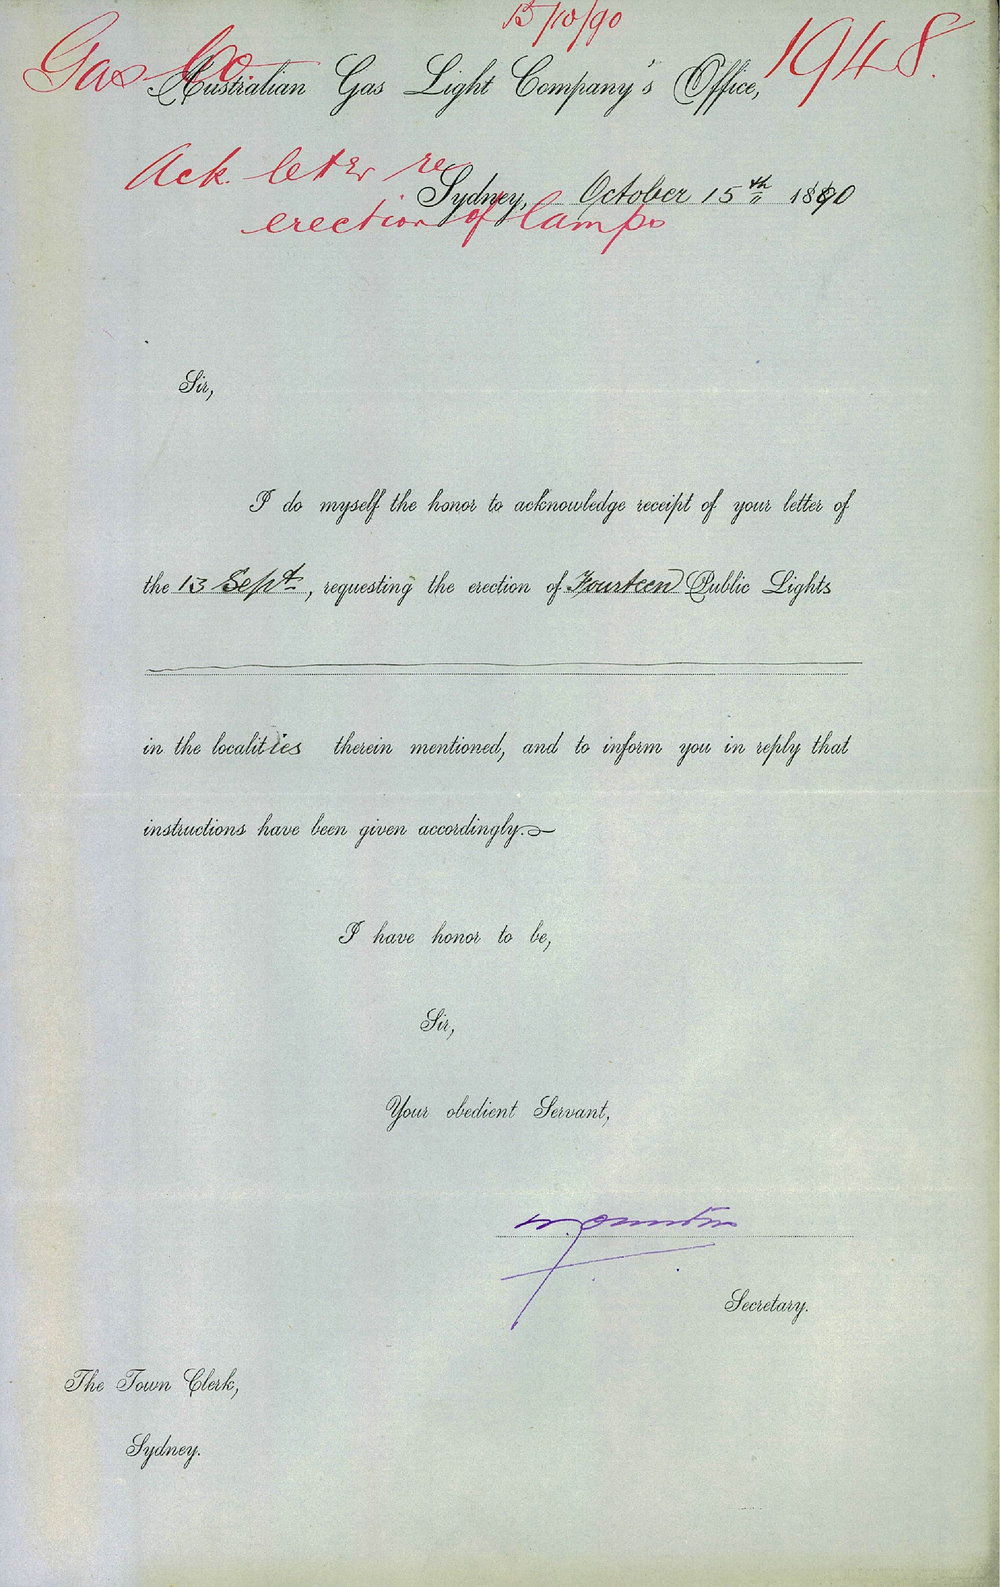 15/10/90
Gas Co. 1948.
Australian Gas Light Company's Office,
Ack. letter re
Sydney, October 15th 1890
erection of lamps
Sir,
I do myself the honor to acknowledge receipt of your letter of
the 13 Sept., requesting the erection of Fourteen Public Lights
in the localities therein mentioned, and to inform you in reply that
instructions have been given accordingly.
I have honor to be,
Sir,
Your obedient Servant,
Secretary.
The Town Clerk,
Sydney.